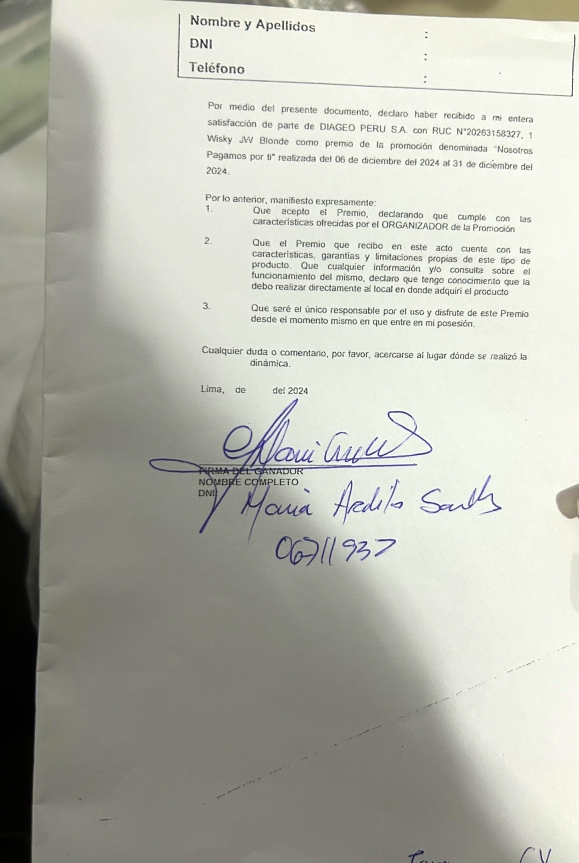 Nombre y Apellidos :
DNI :
Teléfono :
Por medio del presente documento, declaro haber recibido a mi entera
satisfacción de parte de DIAGEO PERU S.A. con RUC N°20263158327, 1
Wisky JW Blonde como premio de la promoción denominada "Nosotros
Pagamos por ti" realizada del 06 de diciembre del 2024 al 31 de diciembre del
2024.
Por lo anterior, manifiesto expresamente:
1. Que acepto el Premio, declarando que cumple con las
características ofrecidas por el ORGANIZADOR de la Promoción
2. Que el Premio que recibo en este acto cuente con las
características, garantías y limitaciones propias de este tipo de
producto. Que cualquier información y/o consulta sobre el
funcionamiento del mismo, declaro que tengo conocimiento que la
debo realizar directamente al local en donde adquirí el producto
3. Que seré el único responsable por el uso y disfrute de este Premio
desde el momento mismo en que entre en mi posesión.
Cualquier duda o comentario, por favor, acercarse al lugar dónde se realizó la
dinámica.
Lima, de del 2024
FIRMA DEL GANADOR
NOMBRE COMPLETO
DNI
Maria Ardila
06711937